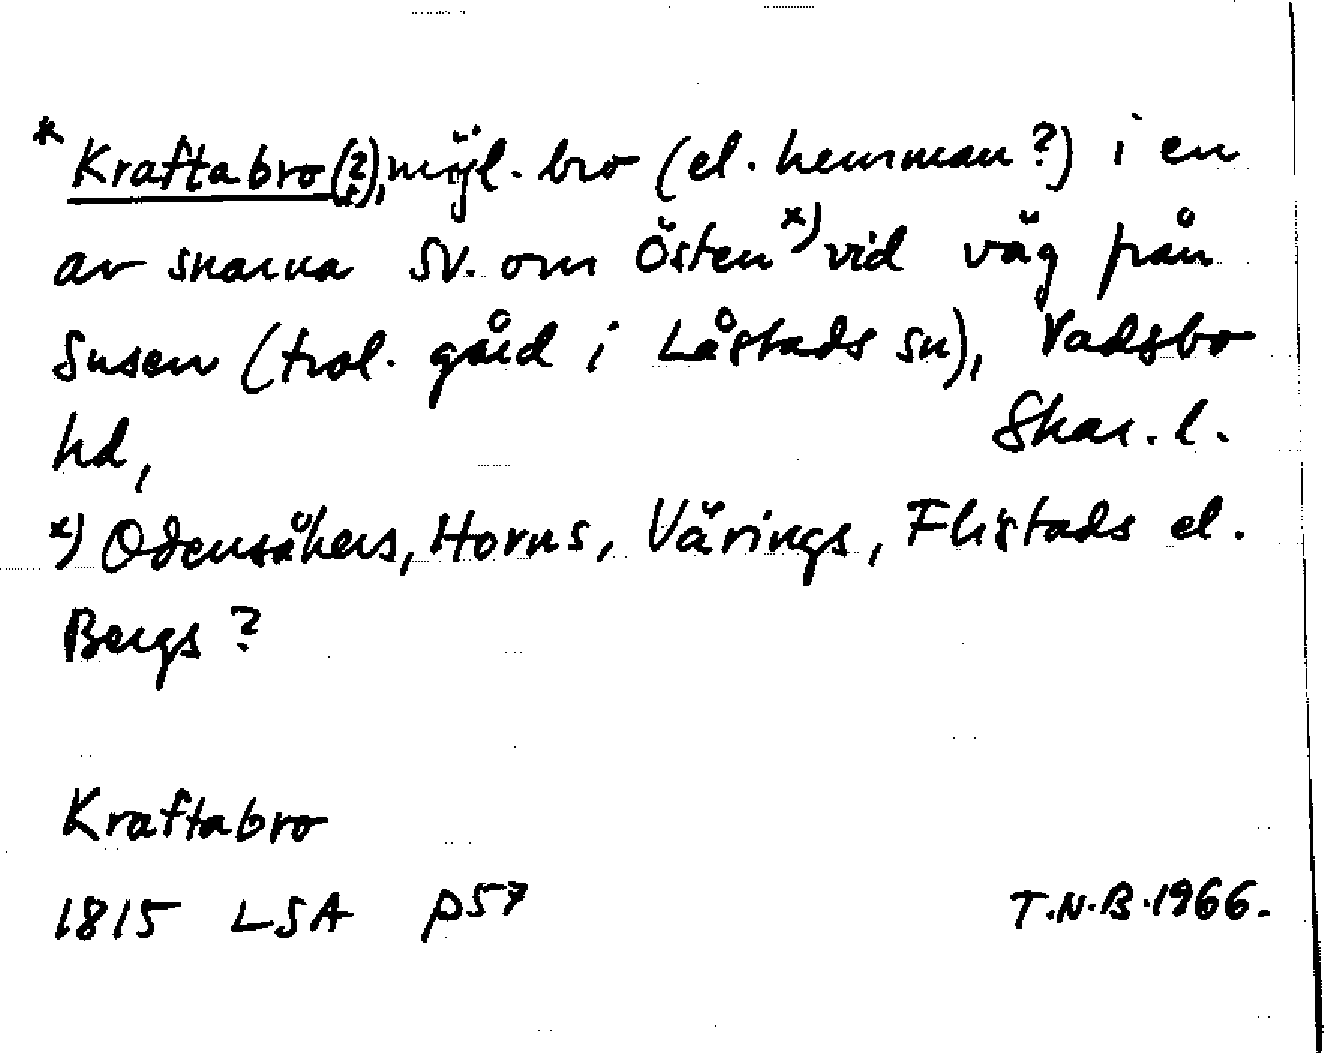 * Kraftabro (?), möjl. bro (el. hemman?) i en
av snarna SV. om Östen x) vid väg från
Susen (trol. gård i Låstads sn), Vadsbo
hd, Skar. l.
x) Odensåkers, Horns, Värings, Flistads el.
Bergs?
Kraftabro
1815 LSA P57 T.N.B. 1966.